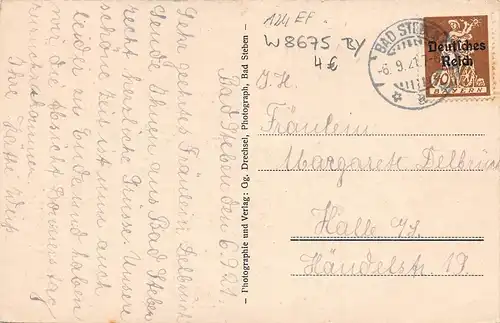 124 EF
W8675 BY
4€
BAD STEBEN
-6. 9. 21
Deutsches
Reich
40
BAYERN
I. H.
Fräulein
Margarete Delbrück
Halle /S
Händelstr. 19.
Photographie und Verlag: Og. Drechsel, Photograph, Bad Steben
Bad Steben den 6.9.21.
Sehr geehrtes Fräulein Delbrück
Sende Ihnen aus Bad Steben
recht herzliche Grüsse. Unsere
schöne Zeit ist nun auch
leider zu Ende und haben
wir die Absicht Donnerstag
zurückzukommen.
Ihre Käthe Weiß